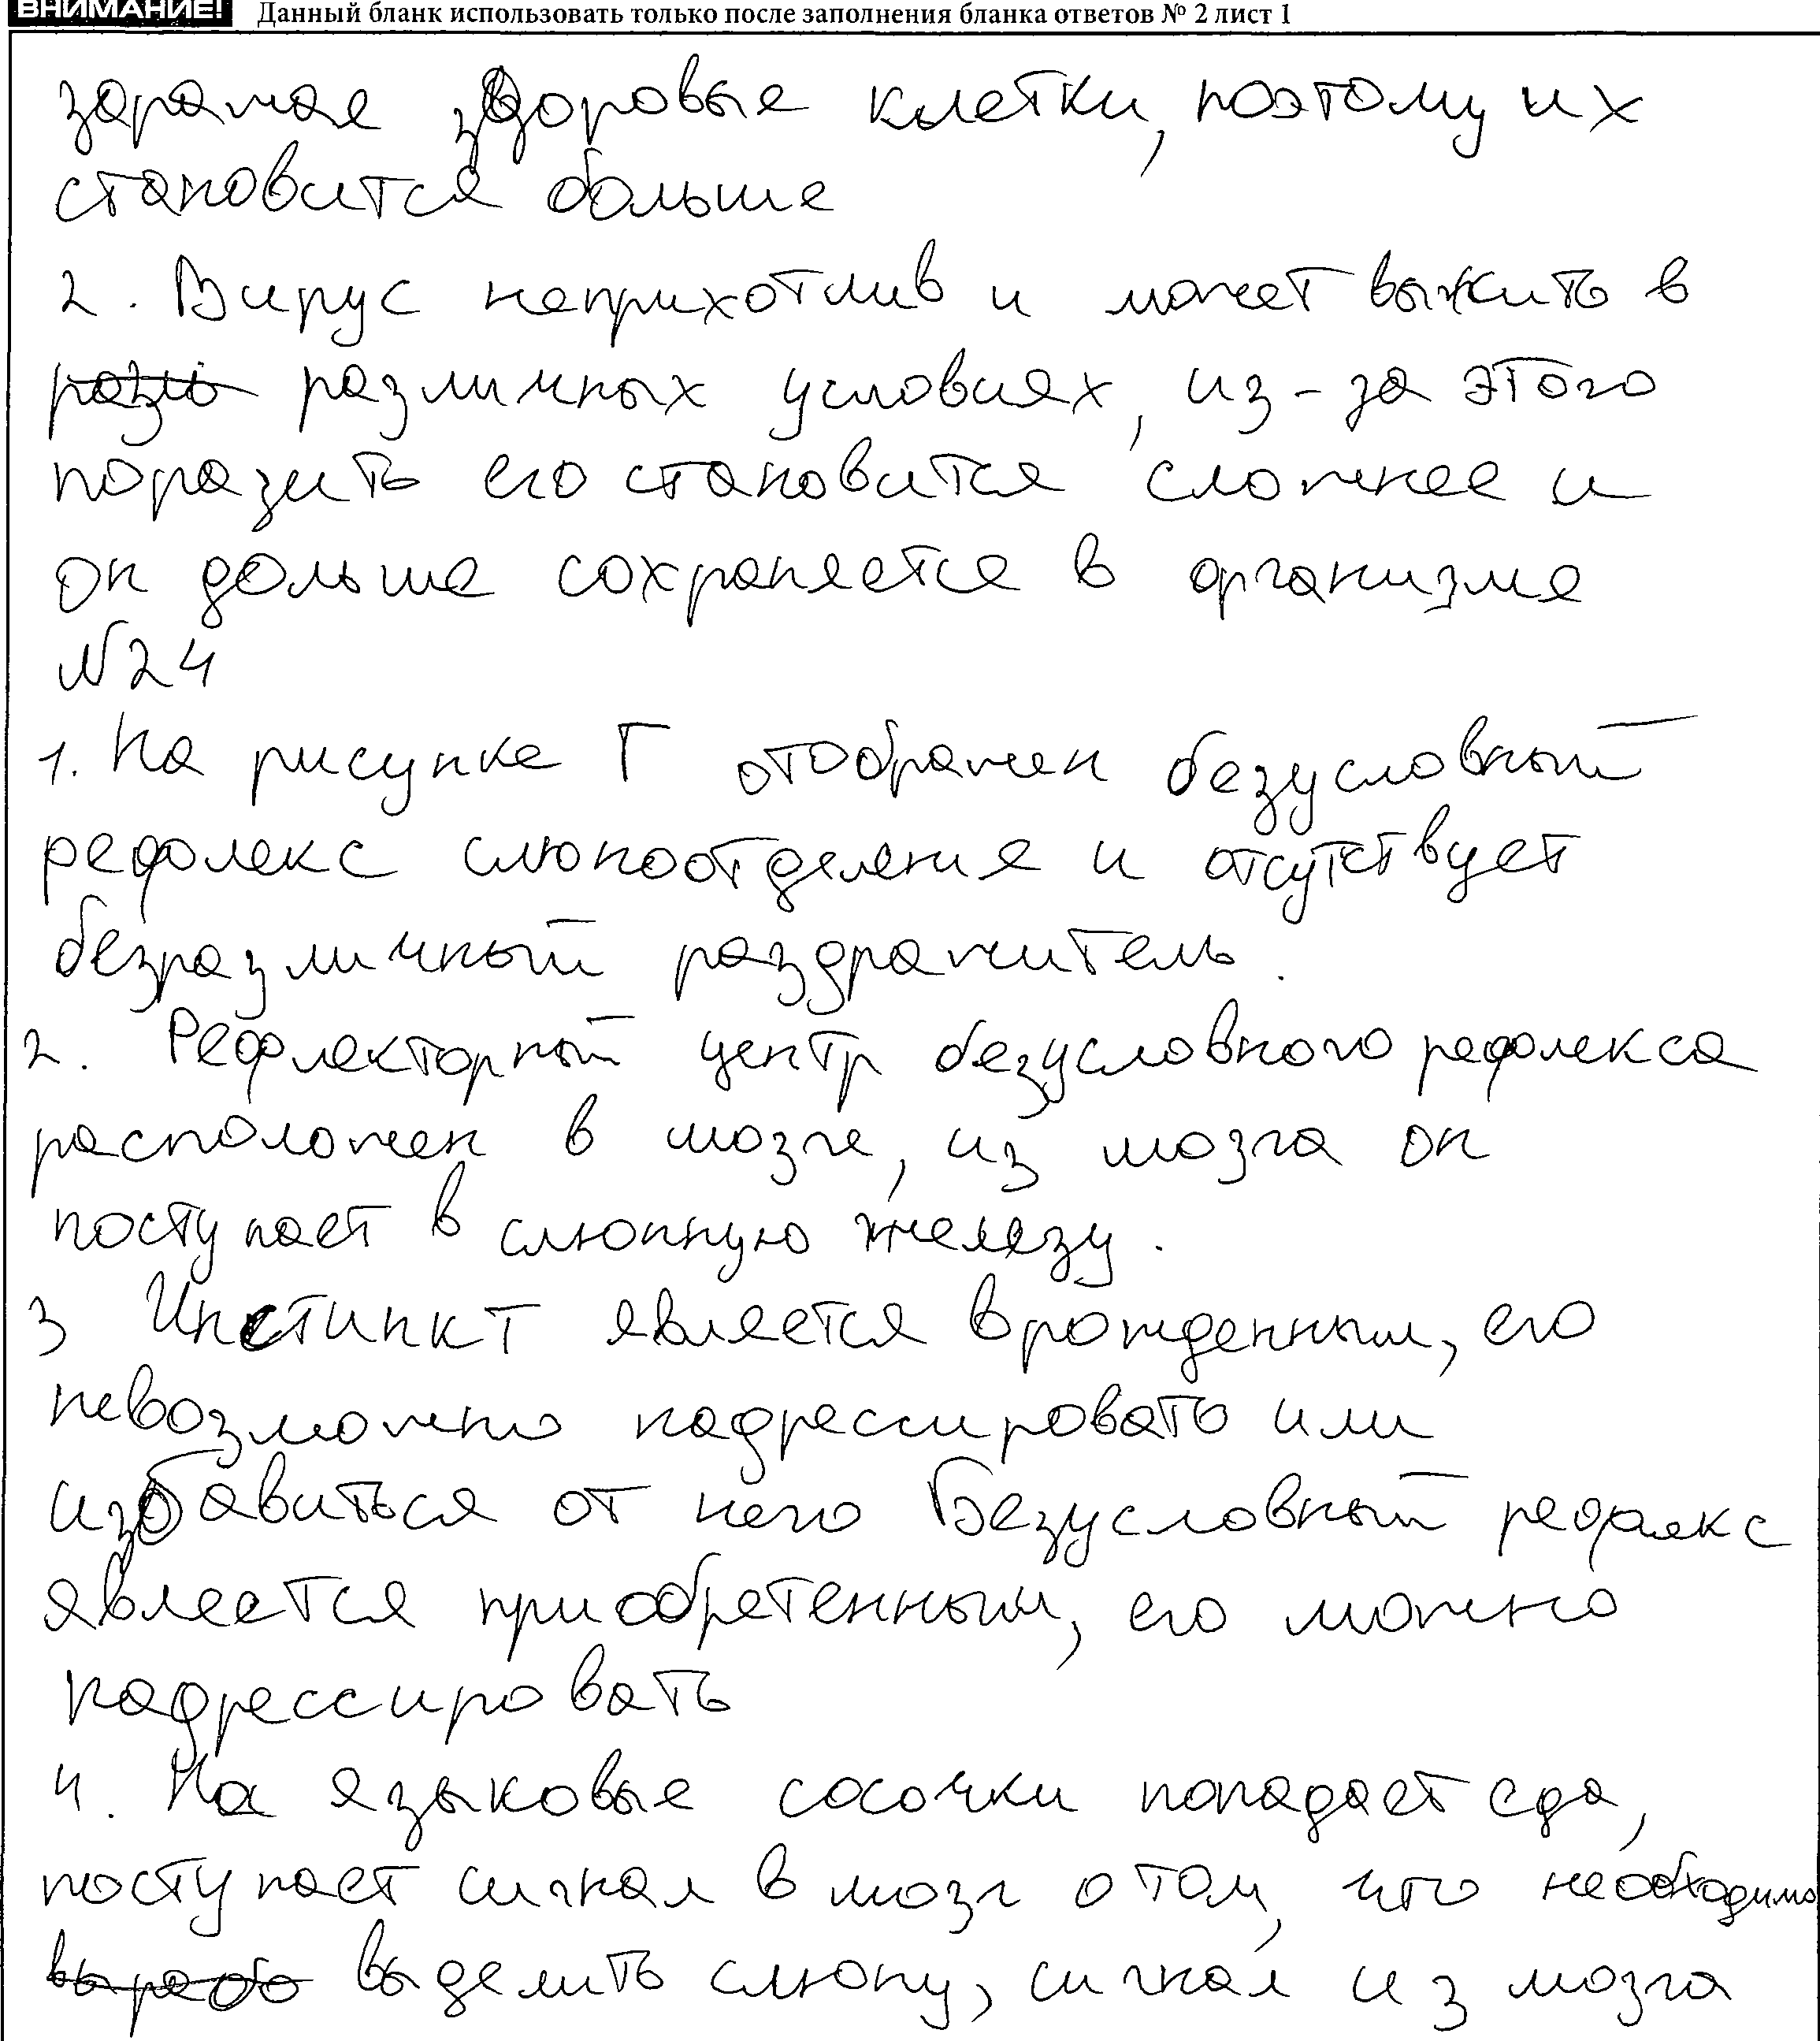 ВНИМАНИЕ! Данный бланк использовать только после заполнения бланка ответов № 2 лист 1
заражая здоровые клетки, поэтому их
становится больше
2. Вирус неприхотлив и может выжить в
различных условиях, из-за этого
поразить его становится сложнее и
он дольше сохраняется в организме
№24
1. На рисунке Г отображен безусловный
рефлекс слюноотделения и отсутствует
безразличный раздражитель.
2. Рефлекторный центр безусловного рефлекса
расположен в мозге, из мозга он
поступает в слюнную железу.
3 Инстинкт является врожденным, его
невозможно надрессировать или
избавиться от него Безусловный рефлекс
является приобретенным, его можно
надрессировать
4. На языковые сосочки попадает еда,
поступает сигнал в мозг о том, что необходимо
выделить слюну, сигнал из мозга